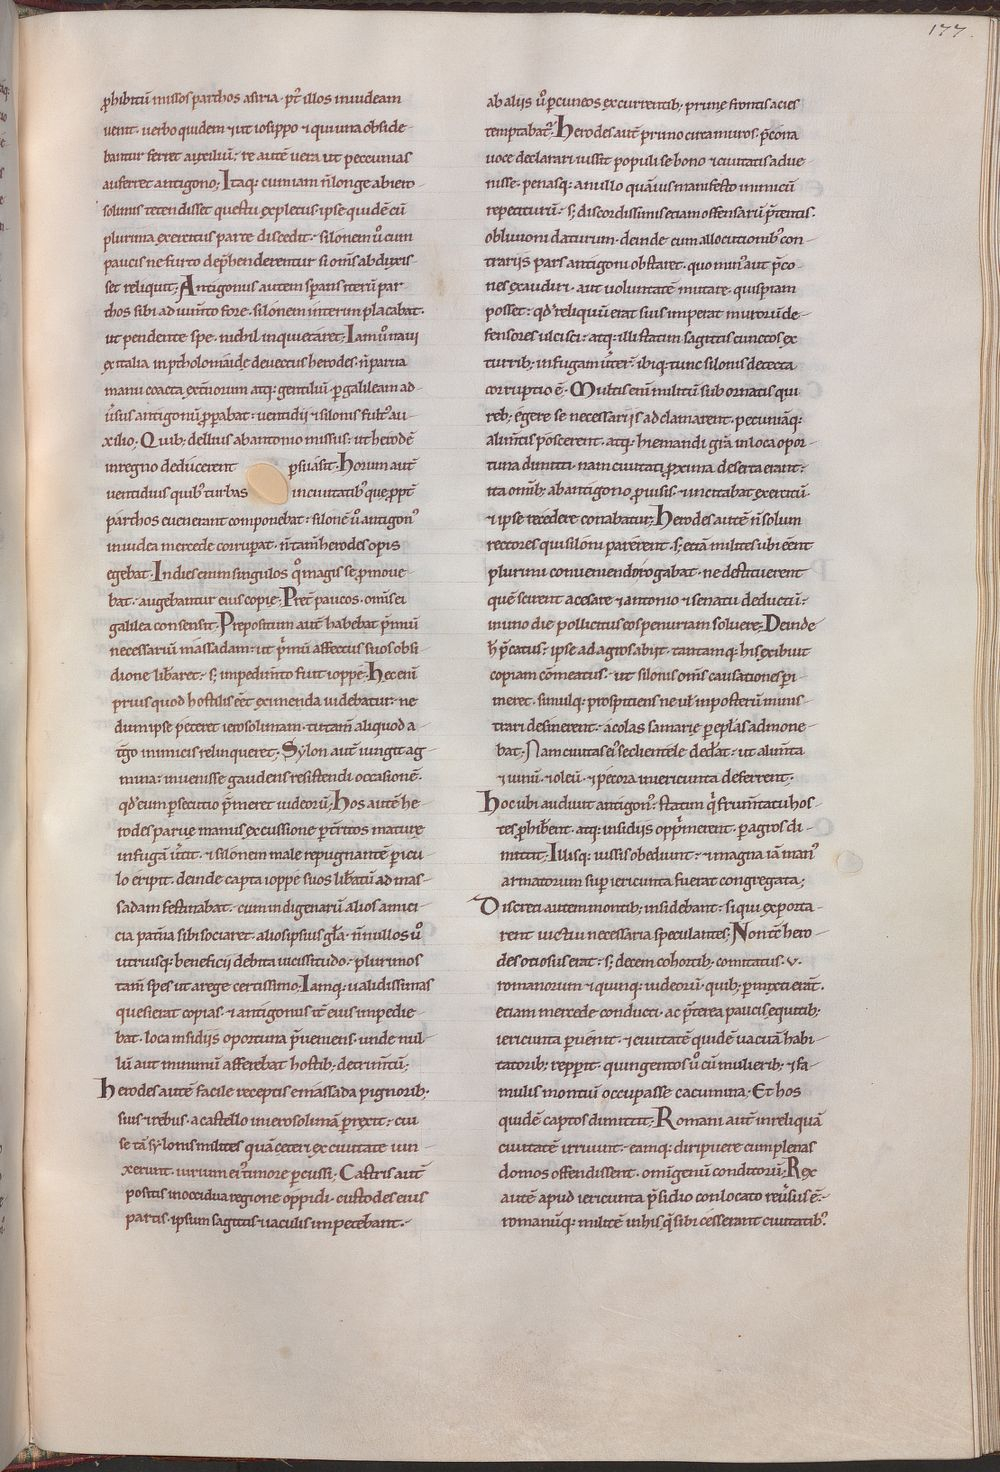 177.
ꝓhibitū missos parthos asiria· pꝰ illos in iudeam
uenit· uerbo quidem ⁊ ut iosippo ⁊ qui una obside-
bantur ferret auxiliū: re autē uera ut peccunias
auferret antigono; Itaq; cum iam n̄ longe ab iero-
solimis tetendisset questu expletus· ipse quidē cū
plurima exercitus parte discedit· silonem ů cum
paucis ne furto dep̄henderentur si om̄s abduxis-
set reliquit; Antigonus autem sperans iterū par-
thos sibi adiuṁto fore· silonem interim placabat·
ut pendente spe· nichil inquietaret; Iam ů naui
ex italia in ptholomaide deuectus herodes· n̄ parua
manu coacta extn̄orum atq; gentiliū· ꝑ galileam ad-
ůsus antigonū ꝓperabat· uentidii ⁊ silonis fultꝰ au-
xilio· Quib; dellius ab antonio missus· ut herodē
in regno deducerent ꝑsuasit· Horum autē
uentidius quibꝰ turbas in ciuitatibꝰ que ꝓpt̄
parthos euenerant componebat· silonē ů antigonꝰ
inuidea mercede corrupat· n̄ tam̄ herodes opis
egebat· In dies enim singulos qͦ magis se ꝓmoue-
bat· augebantur eius copie; Pret̄ paucos· om̄s ei
galilea consensit· Prepositum autē habebat p̄mū
necessariū massadam: ut p̄mū affectus suos obsi-
dione lib̄aret· s; impedimto fuit ioppe· Hec enī
prius quod hostilis eēt eximenda uidebatur· ne
dum ipse peteret ierosolimam· tutam̄ aliquod a
t̄go inimicis relinqueret; Sylon autē iungit ag-
mina: inuenisse gaudens resistendi occasionē·
qd̄ eum ꝑsecutio p̄meret iudeorū; Hos autē he-
rodes parue manus excussione pert̄ritos mature
in fugā ůtit· ⁊ silonem male repugnantē picu-
lo eripit· deinde capta ioppe suos lib̄atū ad mas-
sadam festinabat· cum indigenarū alios amici-
cia pat̄na sibi sociaret· alios ipsius gl̄a· n̄nullos ů
utriusq; beneficij debita uicissitudo· plurimos
tam̄ spes ut a rege certissimo; Iamq; ualidissimas
quesierat copias· ⁊ antigonus it̄e eius impedie-
bat· loca insidiis oportuna p̄ueniens· unde nul-
lū aut minimū afferebat hostib; detrim̄tū;
Herodes autē facile receptis e massada pignorib;
suis ⁊ rebus· a castello in ierosolimā ꝑrexit: cui
se tā sylonis milites quā ceteri ex ciuitate iun-
xerunt· uirum eiꝰ timore ꝑcussi; Castris autē
positis in occidua regione oppidi· custodes eius
partis· ipsum sagittis ⁊ iaculis impetebant·
ab alijs ů ꝑ cuneos excurrentib; prime frontis acies
temptabat̄· Herodes autē primo circa muros· p̄cōna
uoce declarari iussit populi se bono ⁊ ciuitatis adue-
nisse· penasq; a nullo quāuis manifesto inimicū
repetiturū· s; discordissimis etiam offensarū p̄teritis·
obliuioni daturum· deinde cum allocutionibꝰ con-
trarijs pars antigoni obstaret· quominꝰ aut p̄co-
nes exaudiri· aut uoluntatē mutare· quispiam
posset: qd̄ reliquū erat suis imperat murorū de-
fensores ulcisci: atq; illi statim sagittis cunctos ex
turrib; in fugam ůter̄· ibiq; tunc silonis detecta
corruptio ē· Multis enī militū subornatis qui
reb; egere se necessariis adclamarent· pecuniāq;
alim̄tis poscerent· atq; hiemandi grā in loca opor-
tuna dimitti· nam ciuitati ꝓxima deserta erant:
ita omīb; ab antigono ꝓuisis· ⁊ incitabat exercitū·
⁊ ipse recedere conabatur; Herodes autē n̄ solum
rectores qui siloni parerent· s; etiā milites ubi eēnt
plurimi conueniendo rogabat· ne destituerent
quē scirent a cesare ⁊ antonio ⁊ senatu deductū:
in uno die pollicitus eos penuriam soluere; Deinde
h̄ p̄catus: ipse ad agros abijt· tantamq; his exibuit
copiam cōmeatus· ut silonis om̄s causationes pi-
meret· simulq; prospitiens ne uł in posterū minis-
trari desinerent: acolas samarie ꝑ eplās admone-
bat· Nam ciuitas ei se clientele dedat: ut alim̄ta
⁊ uinū· ⁊ oleū· ⁊ pecora in iericunta deferrent·
Hoc ubi audiuit antigonꝰ: statim q̄ frum̄tacū hos-
tes ꝓhib̄ent· atq; insidijs opp̄merent· per agros di-
mittit; Illisq; iussis obediunt: ⁊ magna iā manꝰ
armatorum super iericunta fuerat congregata;
Discreti autem montib; insidebant: si qui exporta-
rent uictui necessaria speculantes; Non tn̄ hero-
des otiosus erat: s; decem cohortib; comitatus· v·
romanorum ⁊ quinq; iudeorū· quib; ꝑmixti erāt·
etiam mercede conducti· ac p̄terea paucis equitib;
iericunta ꝑuenit· ⁊ ciuitatē quidē uacuā habi-
tatorib; repperit· quingentos ů cū mulierib; ⁊ fa-
mulis montiū occupasse cacumina· Et hos
quidē captos dimittit; Romani autē in reliquā
ciuitatē irruunt· eamq; diripuere cum plenas
domos offendissent· omīgenū conditorū; Rex
autē apud iericunta p̄sidio conlocato reůsus ē·
romanūq; militē in his q̄ sibi cesserant ciuitatibꝰ